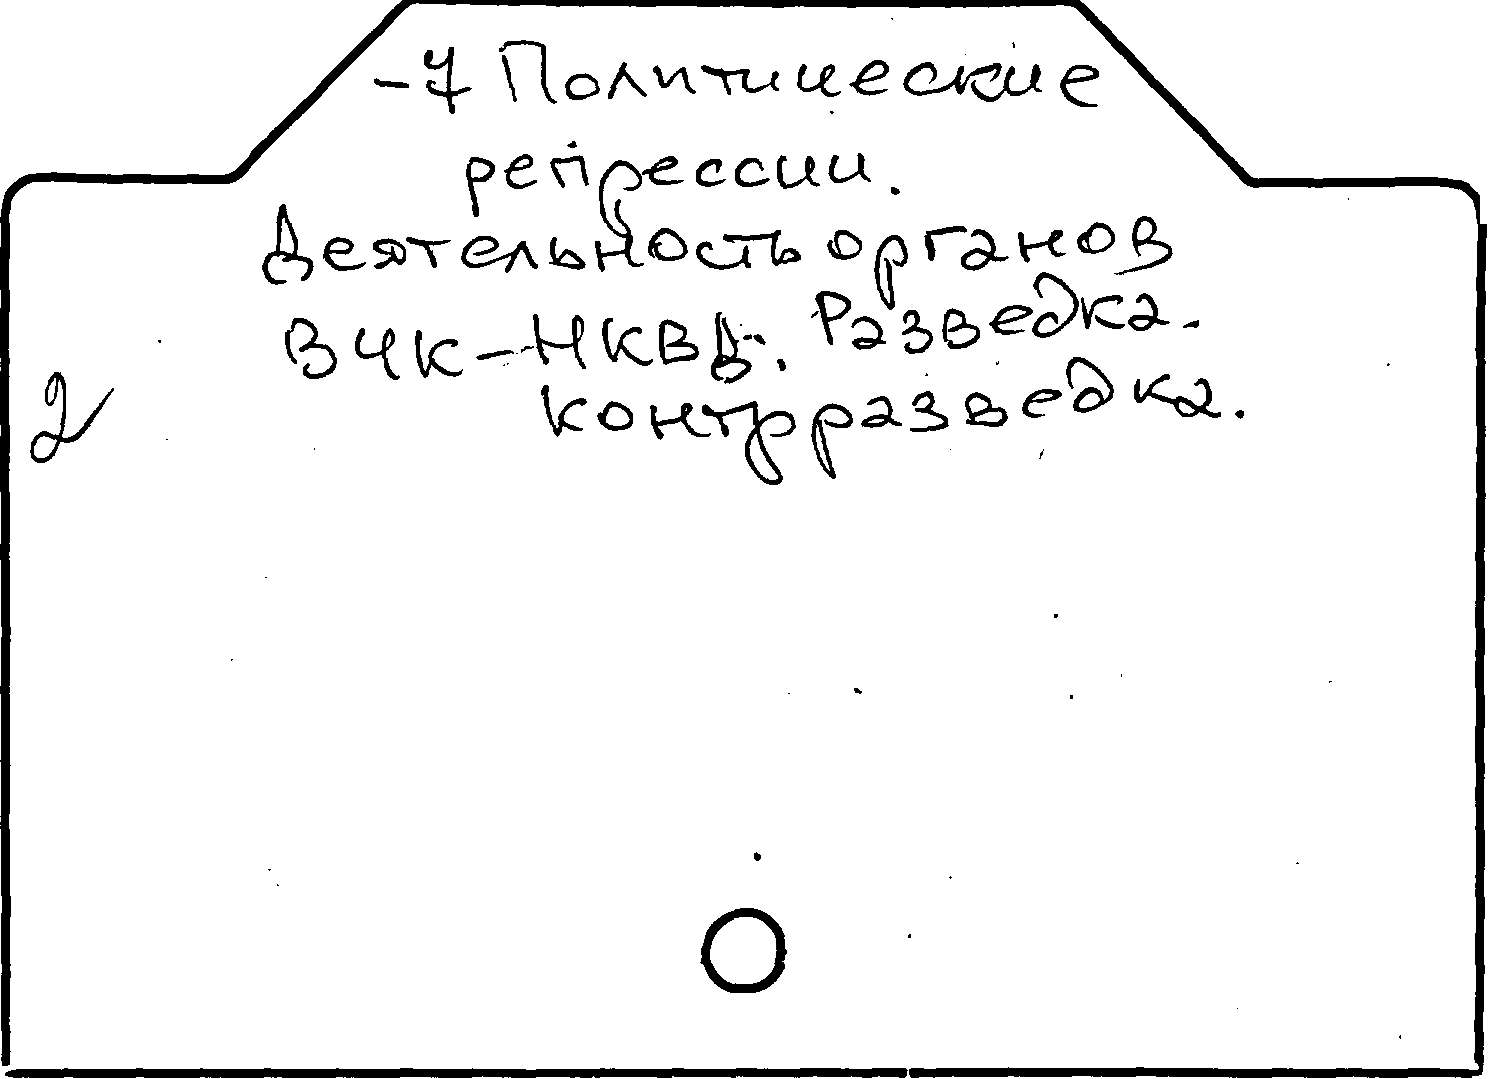 -7 Политические
репрессии.
Деятельность органов
ВЧК-НКВД. Разведка.
контрразведка.
2